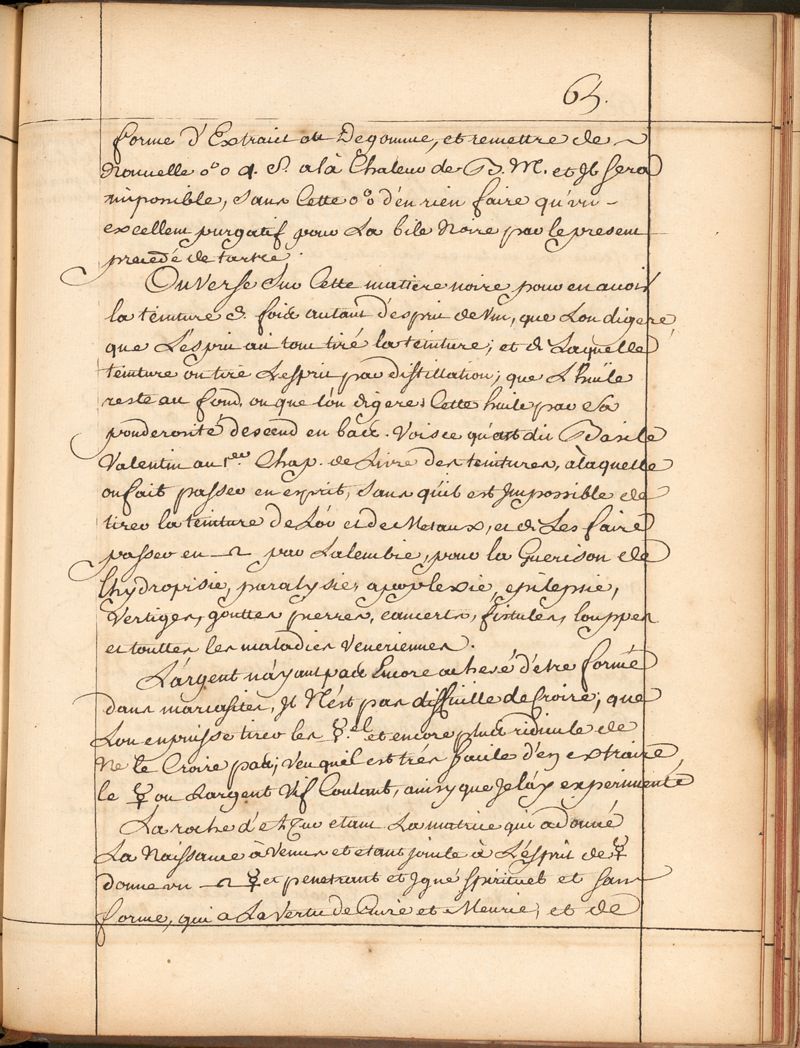 65.
forme d'Extrait ou Degomme, et remettre de
Nouuelle o°o q. S. a la Chaleur de B. M. et Il sera
impossible, sans Cette o°o d'en rien faire qu'vn
excellent purgatif pour La bile Noire par le present
precedé de tartre.
On Verse sur Cette matiere noire pour en auoir
la teinture 3. fois autant d'esprit de Vin, que Lon digere
que L'esprit ait tout tiré la teinture; et de Laquelle
teinture on tire L'esprit par distillation; que L'huile
reste au fond, ou que lon digere; Cette huile par Sa
ponderosité descend en bas. Voisce qu'at dit Basile
Valentin au 1.er Chap. de Livre des teintures, a laquelle
on fait passer en esprit, sans quil est Impossible de
tirer la teinture de Lór et de Metaux, et de Les faire
passer en par Lalembic, pour la Guerison de
lhydropisie, paralysie, apoplexie, epilepsie,
Vertiges, gouttes pierres, cancerts, fistules, louppes
et touttes les maladies Veneriennes.
L'argent n'áyant pas Encore acheué d'étre formé
dans marcasites, Il N'ést pas difficille de Croire; que
Lon en puisse tirer les ☿.el et encore plus ridicule de
Ne le Croire pas; veu quil est trés facile d'en extraire
le ☿ ou Largent Vif Coulant, ainsy que Je láy experimenté
La roche d' etant La matrice qui a donné
La Naissance à Venus et etant jointe à L'ésprit de ☿
donne vn ☿ et penetrant et Igné spirituel et sans
forme, qui a La Vertu de Cuire et Meurir; et de